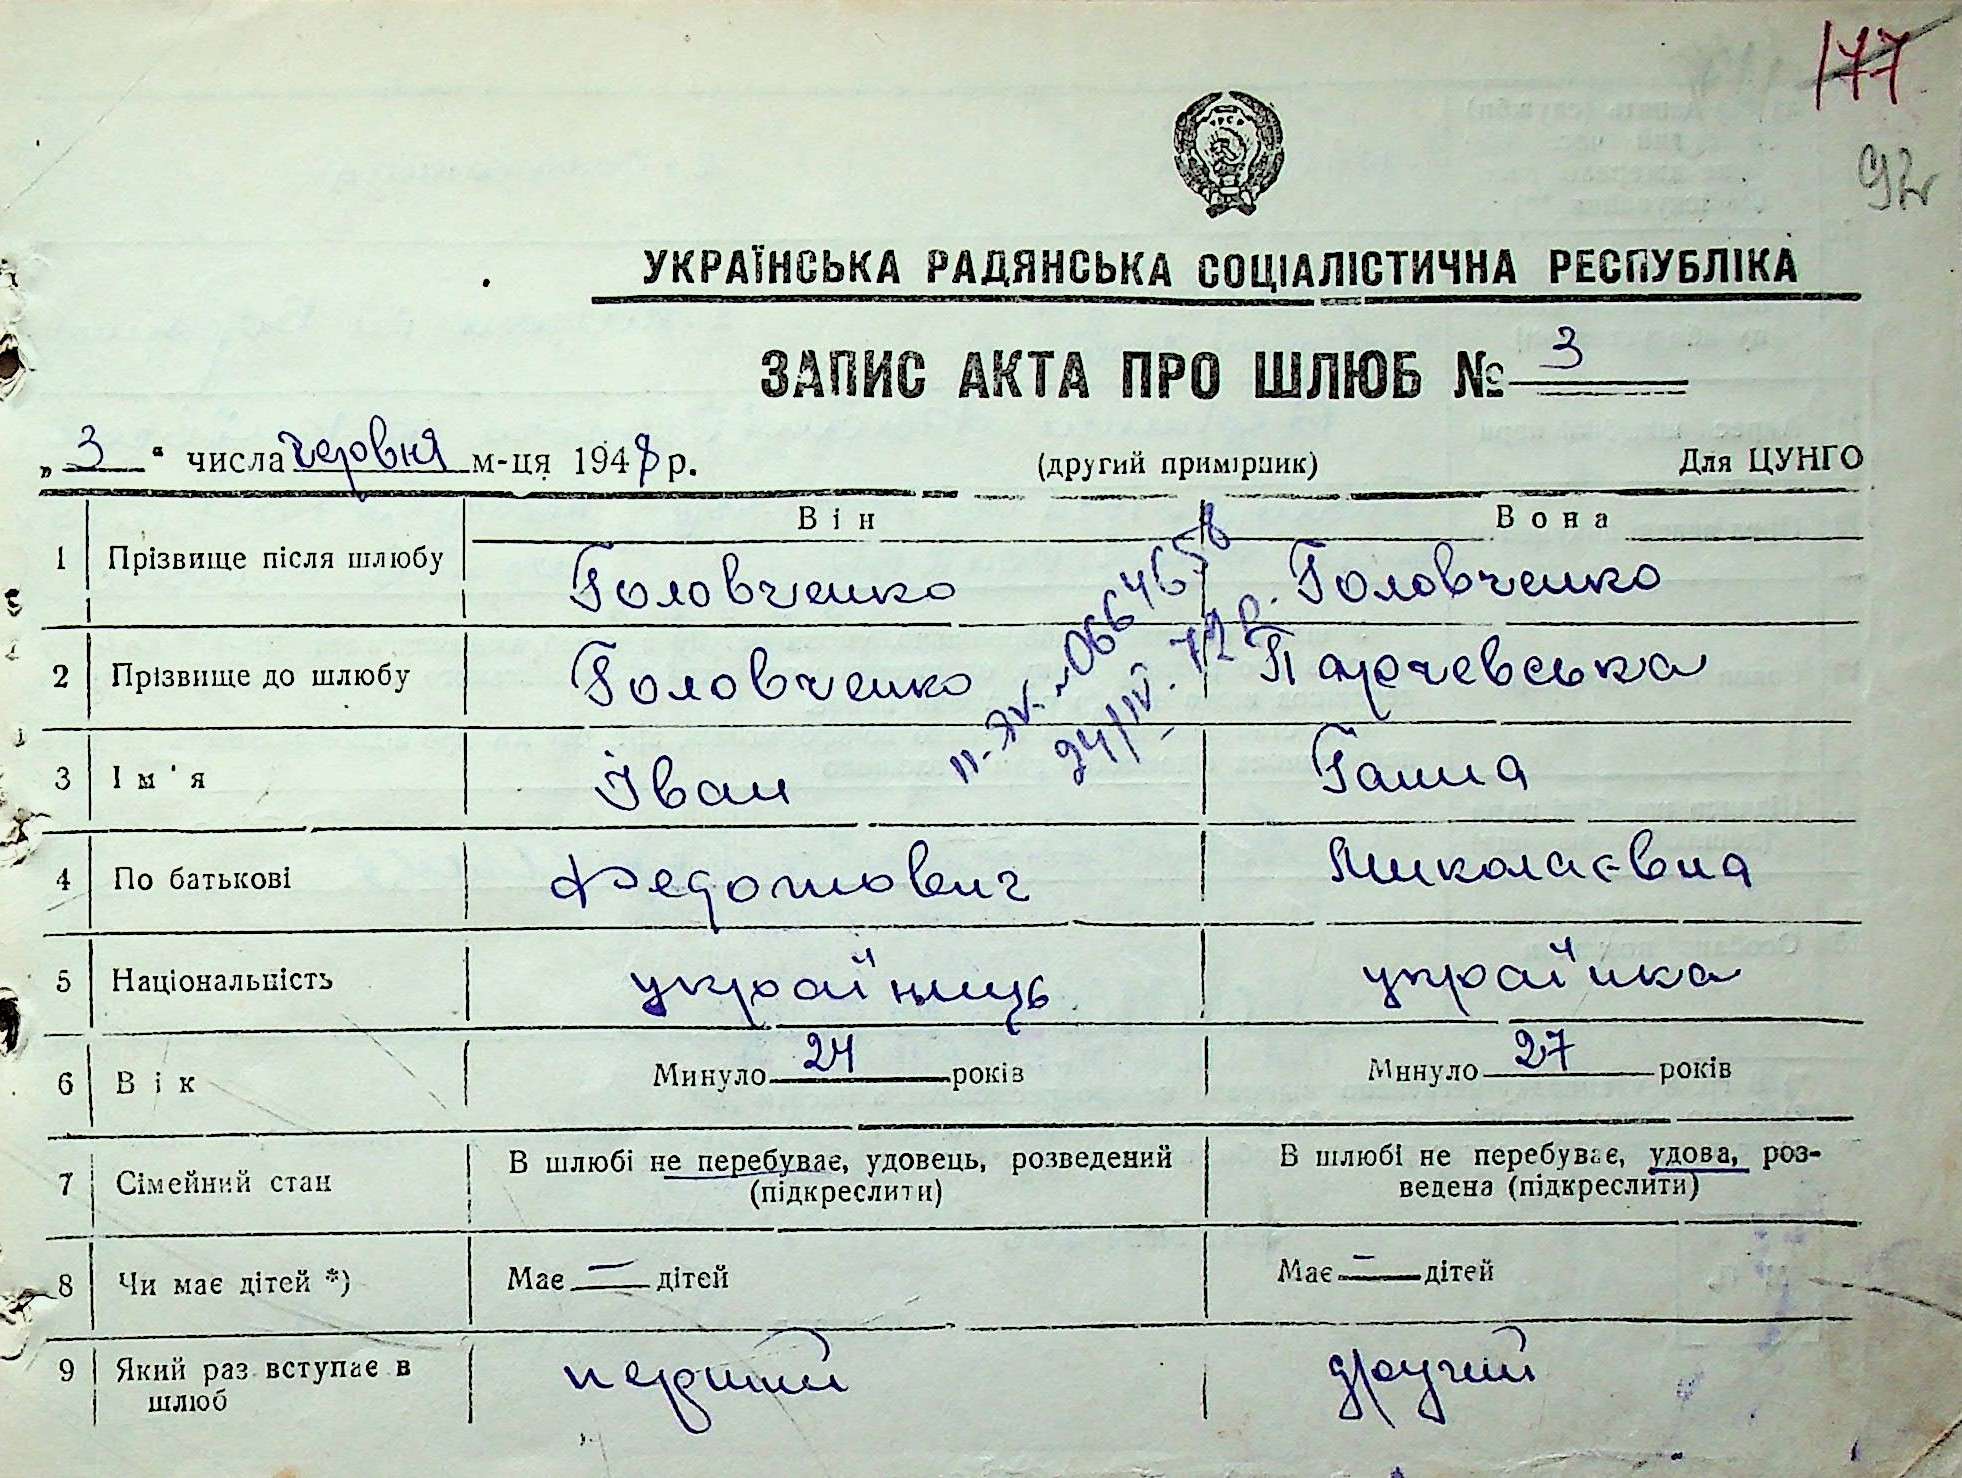 177
92
УРСР
УКРАЇНСЬКА РАДЯНСЬКА СОЦІАЛІСТИЧНА РЕСПУБЛІКА
ЗАПИС АКТА ПРО ШЛЮБ № 3
„ 3 “ числа червня м-ця 1948 р. (другий примірник) Для ЦУНГО
Він Вона
1 Прізвище після шлюбу Головченко Головченко
2 Прізвище до шлюбу Головченко Парчевська
24/IV. 72 р.
3 Ім'я Іван Ганна
4 По батькові Федотович Миколаєвна
5 Національність українець українка
6 Вік Минуло 24 років Минуло 27 років
7 Сімейний стан В шлюбі не перебуває, удовець, розведений В шлюбі не перебуває, удова, роз-
(підкреслити) ведена (підкреслити)
8 Чи має дітей *) Має — дітей Має — дітей
9 Який раз вступає в перший другий
шлюб